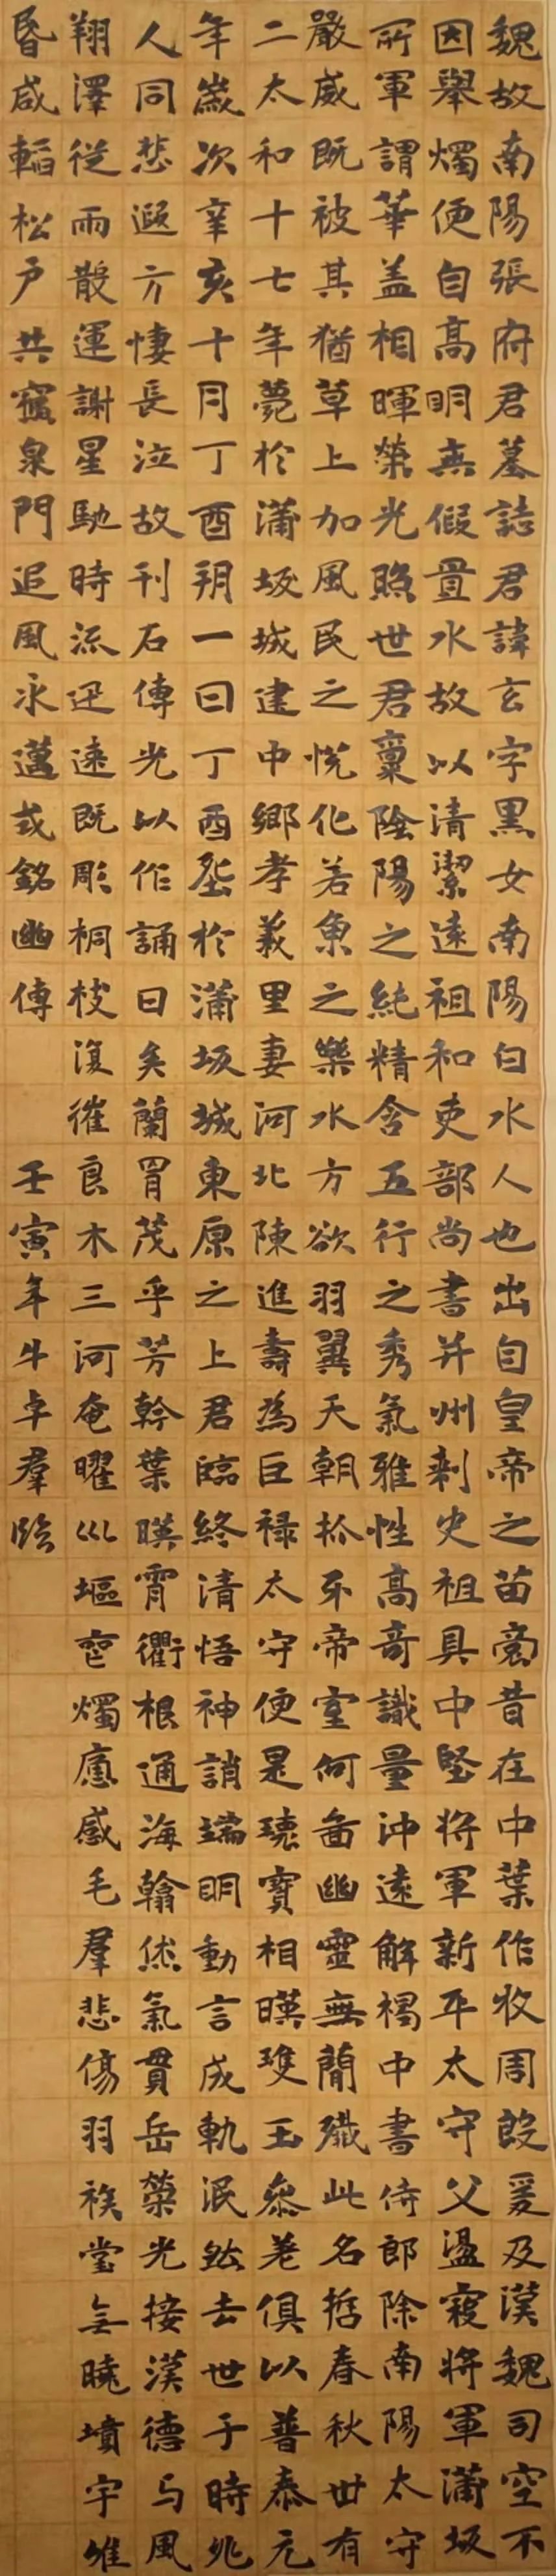 魏故南陽張府君墓誌君諱玄字黑女南陽白水人也出自皇帝之苗裔昔在中葉作牧周殷爰及漢魏司空不
因舉燭便自高明無假置水故以清潔遠祖和吏部尚書并州刺史祖具中堅將軍新平太守父盪寇將軍蒲坂
所軍謂華蓋相暉榮光照世君稟陰陽之純精含五行之秀氣雅性高奇識量沖遠解褐中書侍郎除南陽太守
嚴威既被其猶草上加風民之悅化若魚之樂水方欲羽翼天朝抓牙帝室何啚幽靈無簡殲此名哲春秋卅有
二太和十七年薨於蒲坂城建中鄉孝義里妻河北陳進壽為巨祿太守便是瓌寶相暎雙玉參差俱以普泰元
年歲次辛亥十月丁酉朔一日丁酉塟於蒲坂城東原之上君臨終清悟神誚端明動言成軌泯然去世于時兆
人同悲遐方悽長泣故刊石傳光以作誦曰矣蘭胄茂乎芳幹葉暎霄衢根通海翰烋氣貫岳榮光接漢德与風
翔澤從雨散運謝星馳時流迅速既彫桐枝復摧良木三河奄曜巛堰燭感毛羣悲傷羽族堂無曉墳宇唯
昏咸韜松戶共寢泉門追風永邁式銘幽傳
壬寅年牛卓羣臨